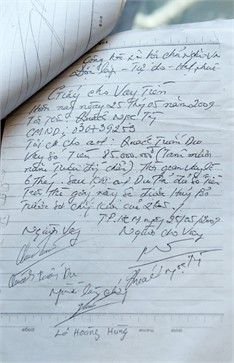 Cộng hòa xã hội chủ nghĩa Việ
Độc lập - Tự do - Hạnh phúc
Giấy cho Vay Tiền
Hôm nay ngày 25 Th 05 năm 2009
Tôi tên: Quách Ngọc Tỷ
CMND: 230739253
Tôi có cho anh: Quách Tuấn Du
Vay số Tiền 85.000.000đ (Tám mươi
năm triệu đồng chẵn) Thời gian vay là
6 tháng sau khi anh Du Trả đủ số tiền
trên thì giấy này sẽ được Huỷ bỏ
Trước sự chứng kiến của 2 bên
TP.HCM ngày 25/05/2009
Người Vay
Người cho Vay
Quách Tuấn Du
Quách Ngọc Tỷ
Người làm chứng
Lê Hoàng Hưng